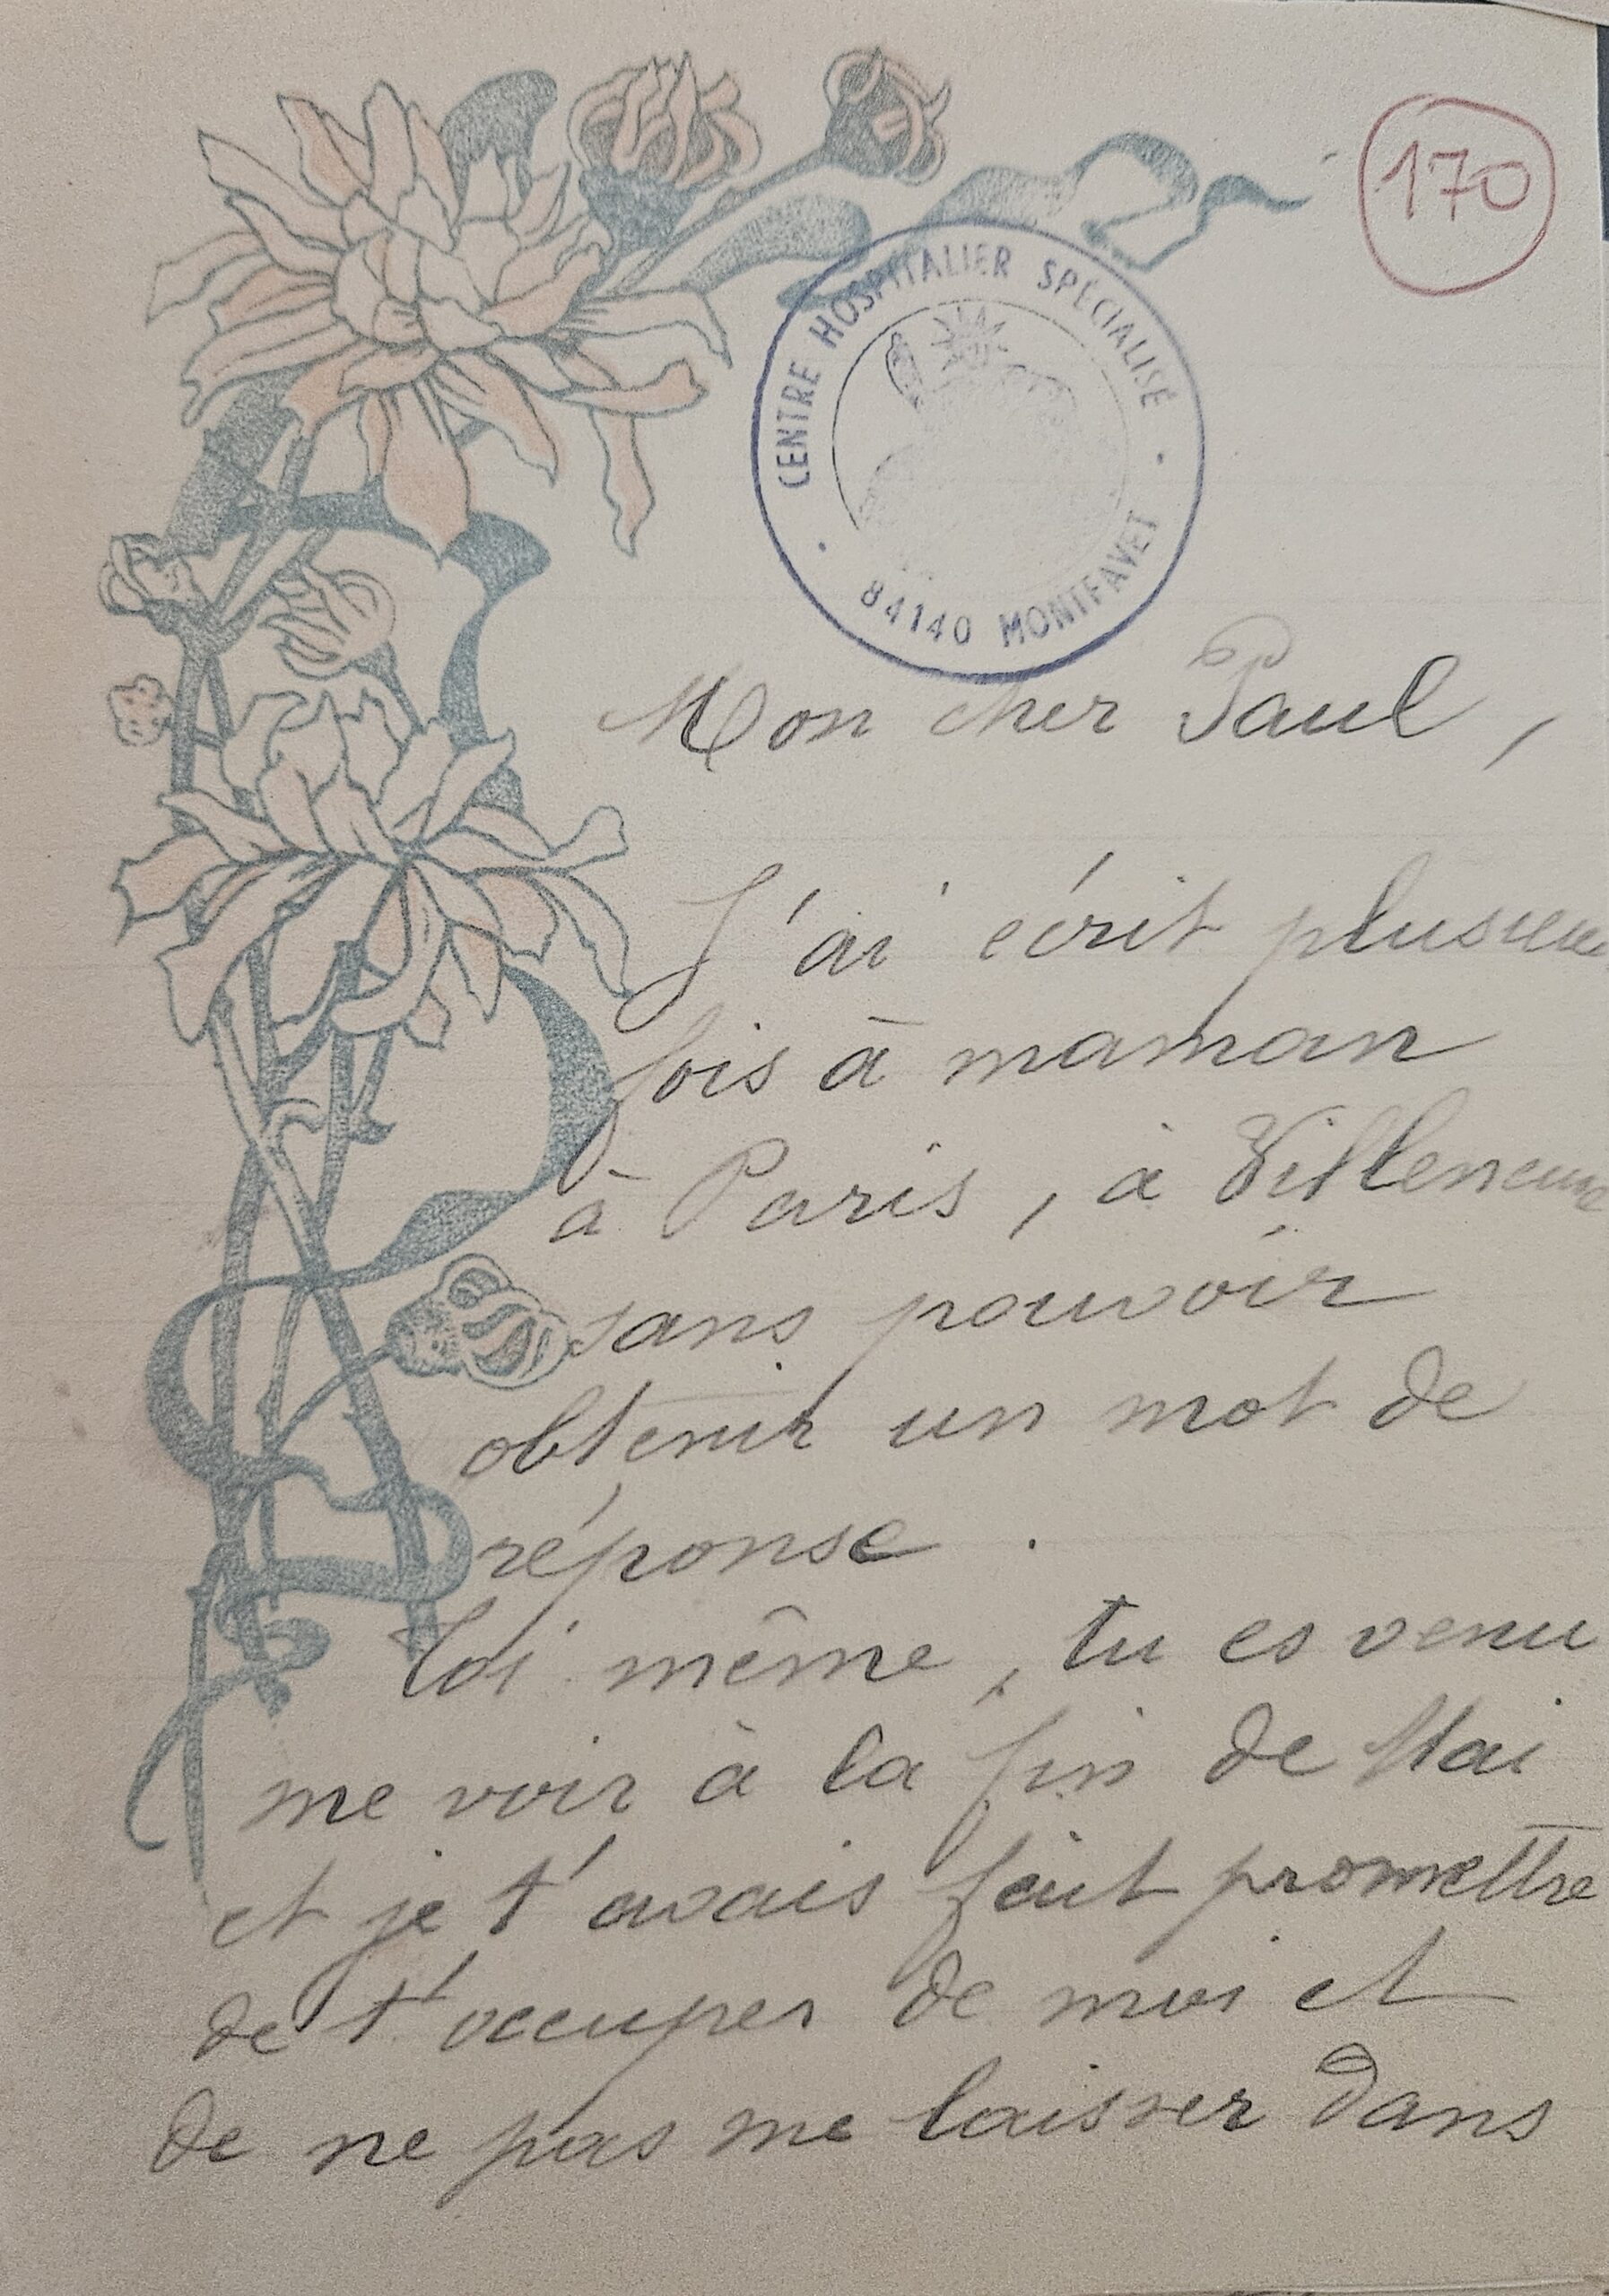 170
CENTRE HOSPITALIER SPÉCIALISÉ
84140 MONTFAVET
Mon cher Paul,
J'ai écrit plusieurs
fois à maman
à Paris, à Villeneuve
sans pouvoir
obtenir un mot de
réponse.
Toi même, tu es venu
me voir à la fin de Mai
et je t'avais fait promettre
de t'occuper de moi et
de ne pas me laisser dans